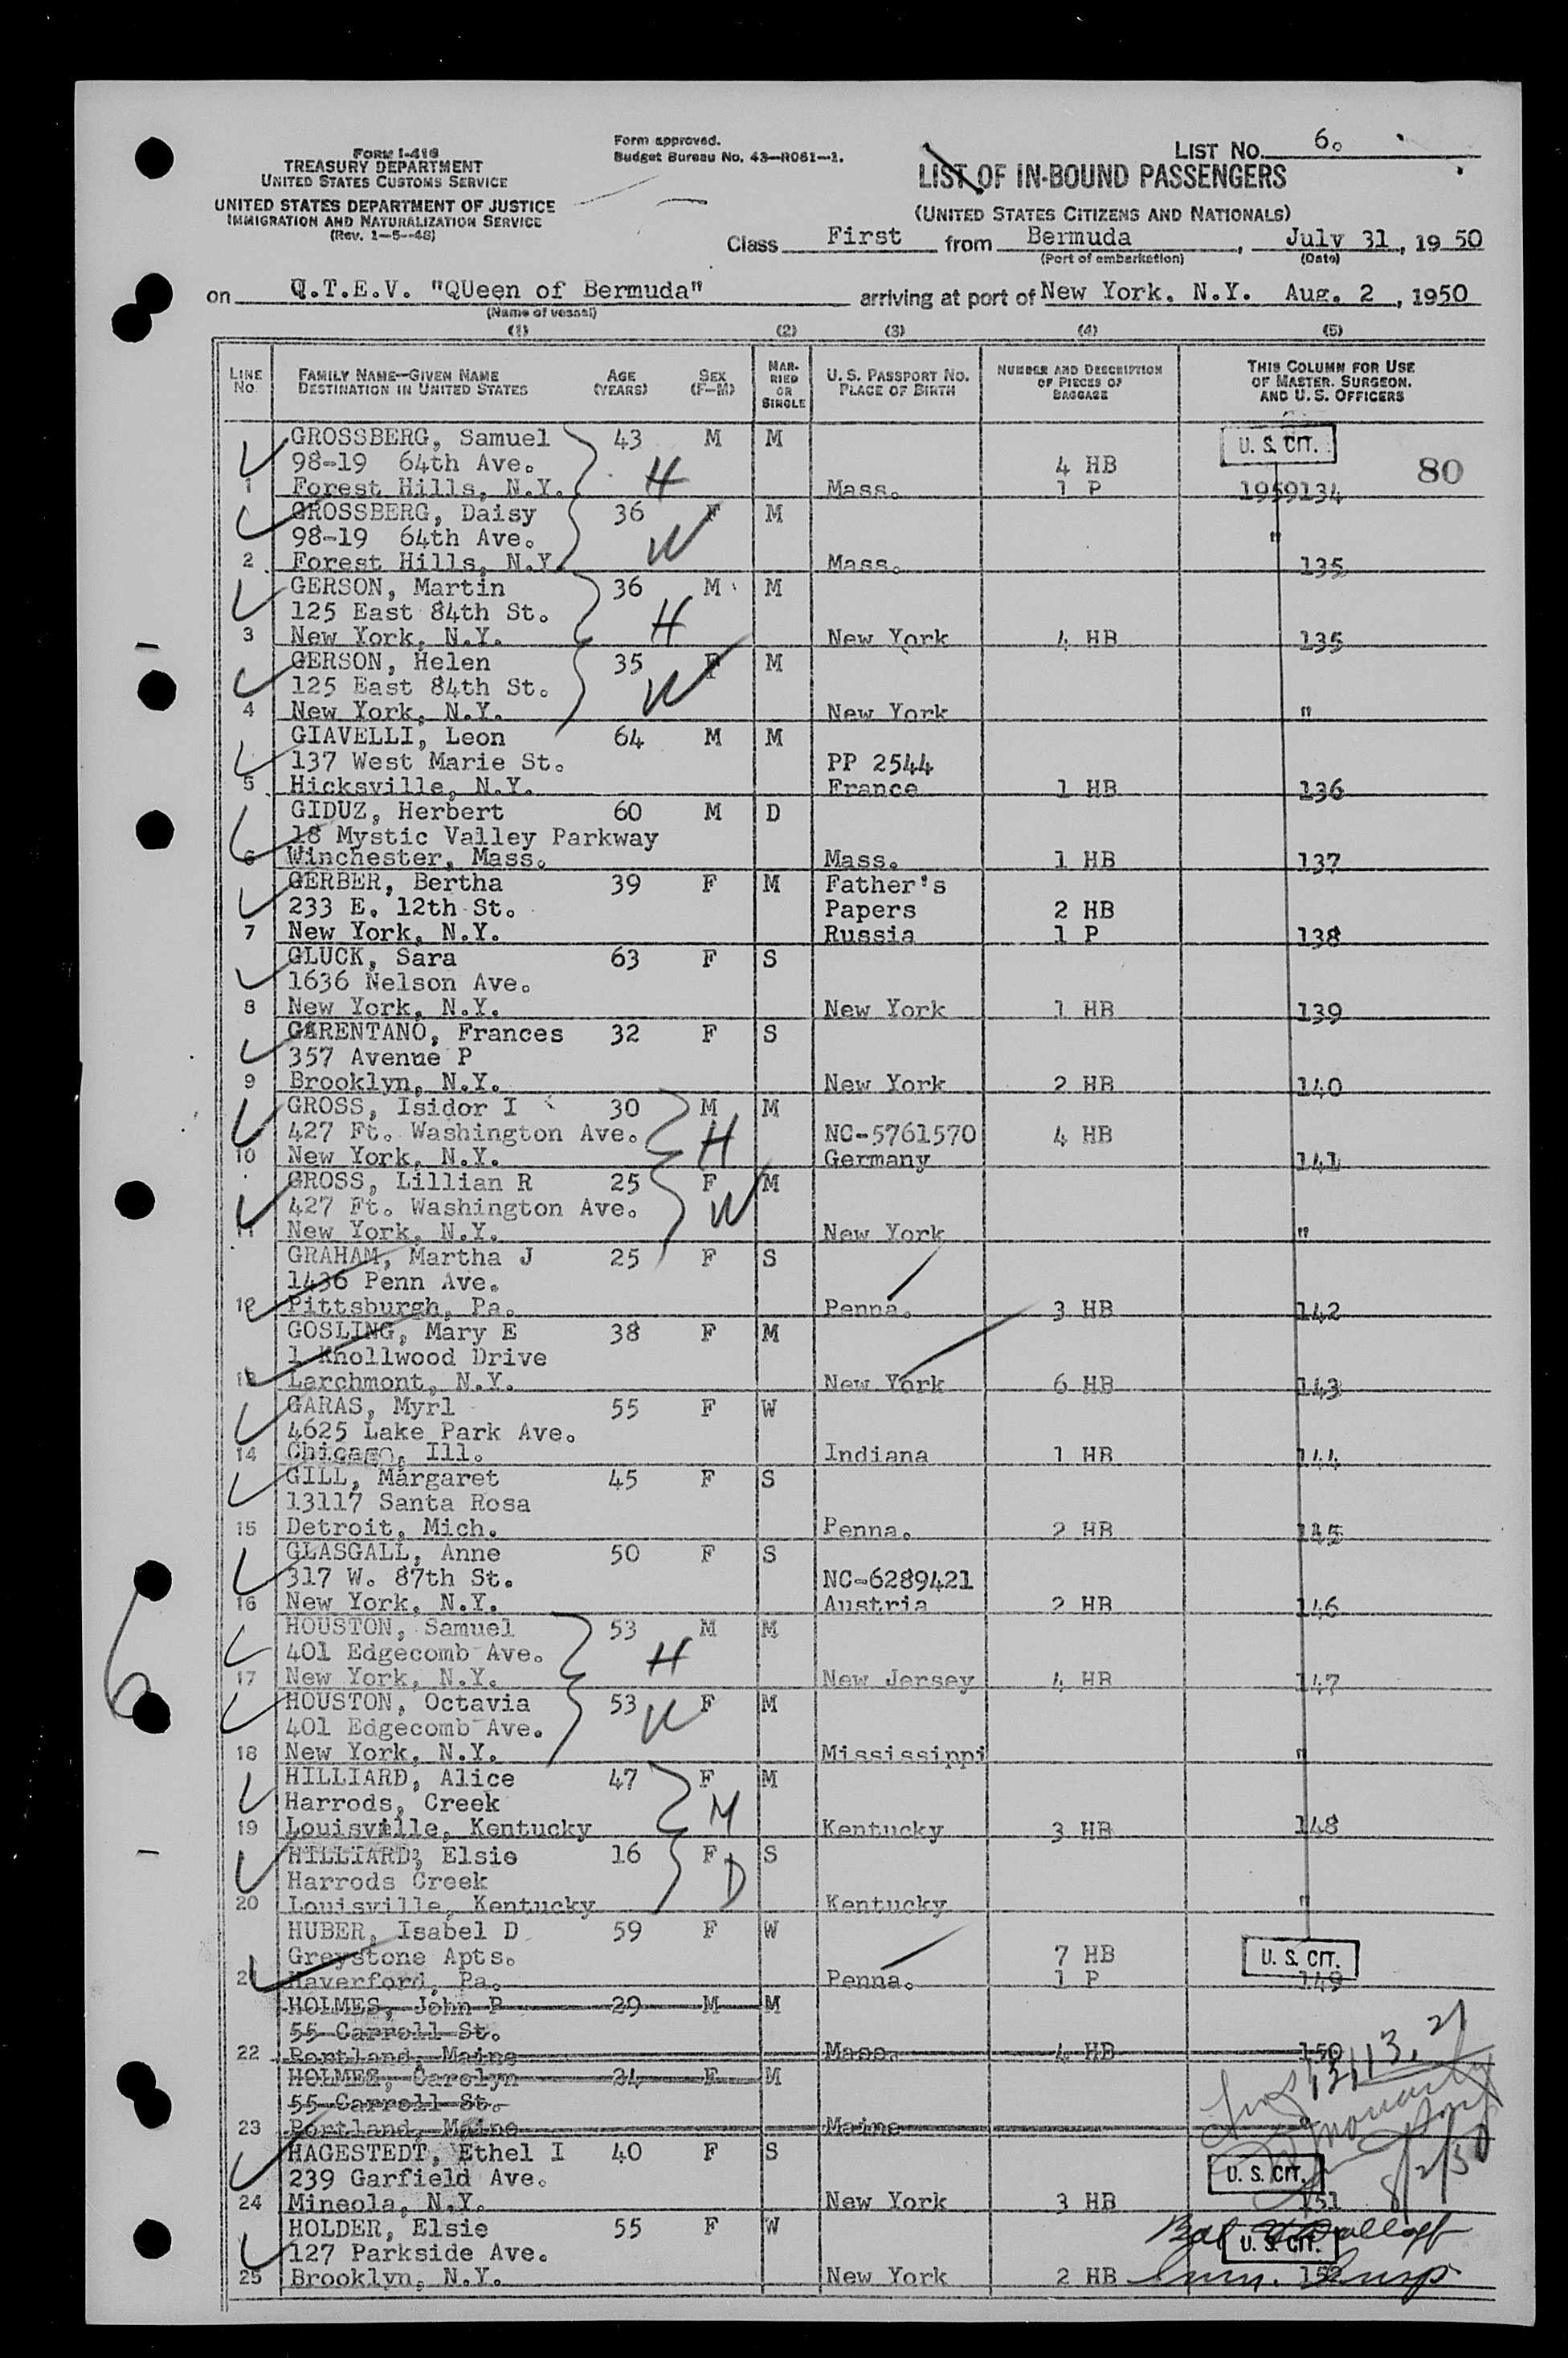 FORM I-416
TREASURY DEPARTMENT
UNITED STATES CUSTOMS SERVICE
UNITED STATES DEPARTMENT OF JUSTICE
IMMIGRATION AND NATURALIZATION SERVICE
(Rev. 1-5-48)
Form approved.
Budget Bureau No. 43-R061-1.
LIST NO. 6.
LIST OF IN-BOUND PASSENGERS
(UNITED STATES CITIZENS AND NATIONALS)
Class First from Bermuda, July 31, 1950
(Port of embarkation) (Date)
on Q.T.E.V. "QUeen of Bermuda" arriving at port of New York, N.Y. Aug. 2, 1950
(Name of vessel)
(1) (2) (3) (4) (5)
LINE No. FAMILY NAME—GIVEN NAME DESTINATION IN UNITED STATES AGE (YEARS) SEX (F-M) MARRIED OR SINGLE U. S. PASSPORT NO. PLACE OF BIRTH NUMBER AND DESCRIPTION OF PIECES OF BAGGAGE THIS COLUMN FOR USE OF MASTER, SURGEON, AND U. S. OFFICERS
GROSSBERG, Samuel 43 M M U. S. CIT.
98-19 64th Ave. H 4 HB 80
1 Forest Hills, N.Y. Mass. 1 P 1959134
GROSSBERG, Daisy 36 F M
98-19 64th Ave. W "
2 Forest Hills, N.Y. Mass. 135
GERSON, Martin 36 M M
125 East 84th St. H
3 New York, N.Y. New York 4 HB 135
GERSON, Helen 35 F M
125 East 84th St. W
4 New York, N.Y. New York "
GIAVELLI, Leon 64 M M
137 West Marie St. PP 2544
5 Hicksville, N.Y. France 1 HB 136
GIDUZ, Herbert 60 M D
18 Mystic Valley Parkway
6 Winchester, Mass. Mass. 1 HB 137
GERBER, Bertha 39 F M Father's
233 E. 12th St. Papers 2 HB
7 New York, N.Y. Russia 1 P 138
GLUCK, Sara 63 F S
1636 Nelson Ave.
8 New York, N.Y. New York 1 HB 139
GARENTANO, Frances 32 F S
357 Avenue P
9 Brooklyn, N.Y. New York 2 HB 140
GROSS, Isidor I 30 M M
427 Ft. Washington Ave. H NC-5761570 4 HB
10 New York, N.Y. Germany 141
GROSS, Lillian R 25 F M
427 Ft. Washington Ave. W
11 New York, N.Y. New York "
GRAHAM, Martha J 25 F S
1436 Penn Ave.
12 Pittsburgh, Pa. Penna. 3 HB 142
GOSLING, Mary E 38 F M
1 Knollwood Drive
13 Larchmont, N.Y. New York 6 HB 143
GARAS, Myrl 55 F W
4625 Lake Park Ave.
14 Chicago, Ill. Indiana 1 HB 144
GILL, Margaret 45 F S
13117 Santa Rosa
15 Detroit, Mich. Penna. 2 HB 145
GLASGALL, Anne 50 F S
317 W. 87th St. NC-6289421
16 New York, N.Y. Austria 2 HB 146
HOUSTON, Samuel 53 M M
401 Edgecomb Ave. H
17 New York, N.Y. New Jersey 4 HB 147
HOUSTON, Octavia 53 W F M
401 Edgecomb Ave.
18 New York, N.Y. Mississippi "
HILLIARD, Alice 47 F M
Harrods, Creek M
19 Louisville, Kentucky Kentucky 3 HB 148
HILLIARD, Elsie 16 F S
Harrods Creek D
20 Louisville, Kentucky Kentucky "
HUBER, Isabel D 59 F W
Greystone Apts. 7 HB U. S. CIT.
21 Haverford, Pa. Penna. 1 P 149
HOLMES, John P 29 M M
55 Carroll St.
22 Portland, Maine Mass. 4 HB 150
HOLMES, Carolyn 24 F M
55 Carroll St.
23 Portland, Maine Maine "
HAGESTEDT, Ethel I 40 F S
239 Garfield Ave. U. S. CIT. 8/2/50
24 Mineola, N.Y. New York 3 HB 151
HOLDER, Elsie 55 F W
127 Parkside Ave. U. S. CIT.
25 Brooklyn, N.Y. New York 2 HB 152
Imm. Insp
6